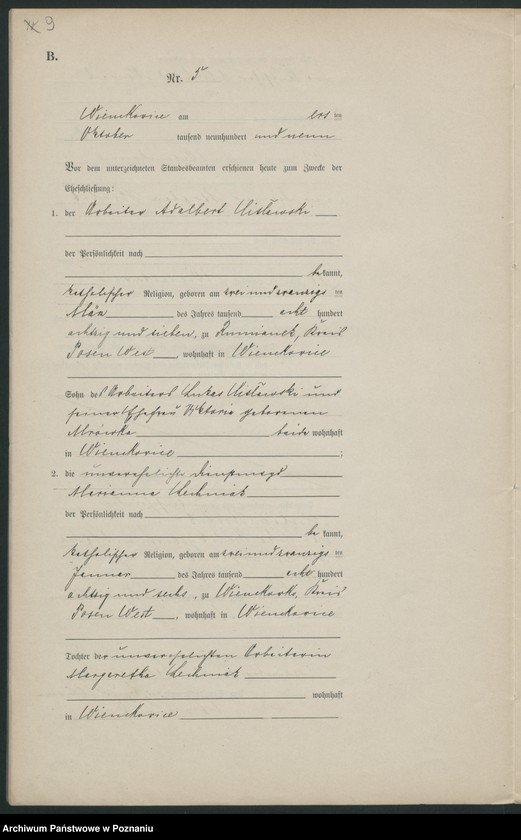 9
B.
Nr. 5
Wienckovice am ersten
Oktober tausend neunhundert und neun
Vor dem unterzeichneten Standesbeamten erschienen heute zum Zwecke der
Eheschließung:
1. der Arbeiter Adalbert
der Persönlichkeit nach
bekannt,
katholischer Religion, geboren am dreiundzwanzigsten
März des Jahres tausend acht hundert
achtzig und sieben, zu Rumianek, Kreis
Posen West, wohnhaft in Wienckovice
Sohn des Arbeiters Lukas und
seiner Ehefrau Viktoria geborenen
Mrówka beide wohnhaft
in Wienckovice;
2. die unverehelichte Dienstmagd
Marianna Lechniak
der Persönlichkeit nach
bekannt,
katholischer Religion, geboren am dreiundzwanzigsten
Januar des Jahres tausend acht hundert
achtzig und sechs, zu Wienckovice, Kreis
Posen West, wohnhaft in Wienckovice
Tochter der unverehelichten Arbeiterin
Margaretha Lechniak
wohnhaft
in Wienckovice
Archiwum Państwowe w Poznaniu